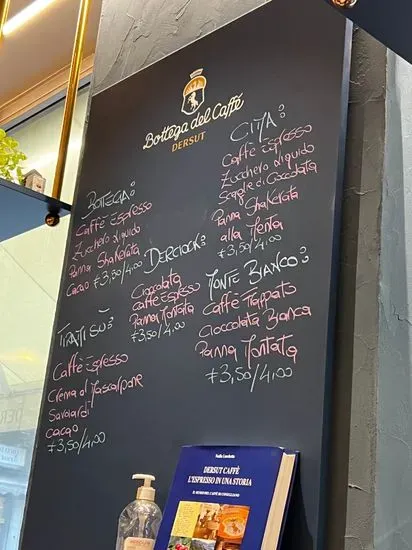 Bottega del Caffè
DERSUT
BOTTEGA:
Caffè Espresso
Zucchero liquido
Panna Shakerata
Cacao €3,50/4,00
CIMA:
Caffè Espresso
Zucchero liquido
Scaglie di Cioccolata
Panna Shakerata
alla Menta
€3,50/4,00
DERCIOCK:
Cioccolata
Caffè Espresso
Panna Montata
€3,50/4,00
MONTE BIANCO:
Caffè Frappato
Cioccolata Bianca
Panna Montata
€3,50/4,00
TIRATI SÙ:
Caffè Espresso
Crema al Mascarpone
Savoiardi
cacao
€3,50/4,00
DERSUT CAFFÈ
L'ESPRESSO IN UNA STORIA
IL MUSEO DEL CAFFÈ DI CONEGLIANO